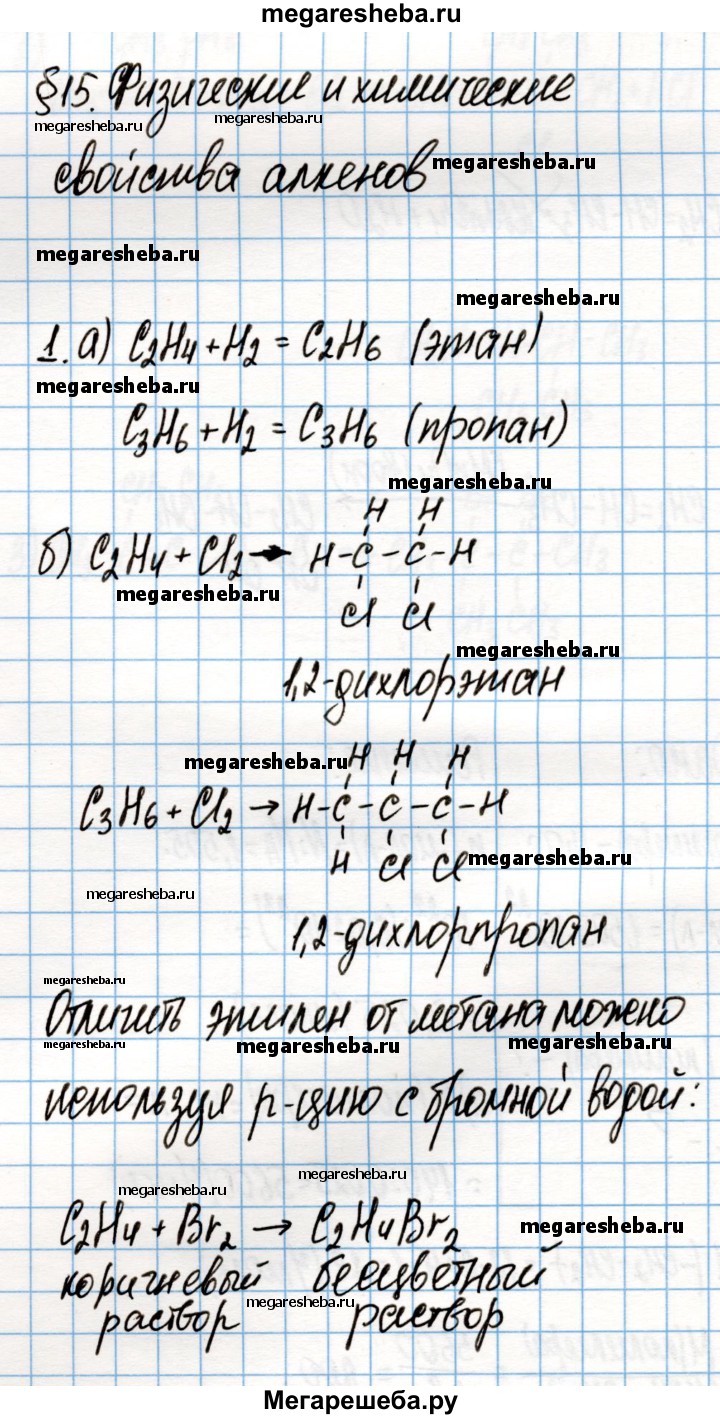 megaresheba.ru
§15. Физические и химические
megaresheba.ru megaresheba.ru
свойства алкенов megaresheba.ru
megaresheba.ru
megaresheba.ru
1. а) C2H4 + H2 = C2H6 (этан)
megaresheba.ru
C3H6 + H2 = C3H6 (пропан)
megaresheba.ru
H H
б) C2H4 + Cl2 → H-C-C-H
megaresheba.ru
Cl Cl
megaresheba.ru
1,2-дихлорэтан
megaresheba.ru H H H
C3H6 + Cl2 → H-C-C-C-H
H Cl Cl megaresheba.ru
megaresheba.ru
1,2-дихлорпропан
megaresheba.ru
Отличить этилен от метана можно
megaresheba.ru megaresheba.ru megaresheba.ru
используя р-цию с бромной водой:
megaresheba.ru
megaresheba.ru
C2H4 + Br2 → C2H4Br2 megaresheba.ru
коричневый бесцветный
megaresheba.ru
раствор раствор
Мегарешеба.ру